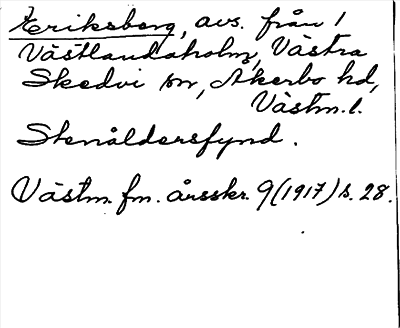 Eriksberg, avs. från 1
Västlandaholm, Västra
Skedvi sn, Åkerbo hd,
Västm. l.
Stenåldersfynd.
Västm. fm. årsskr. 9 (1917) s. 28.